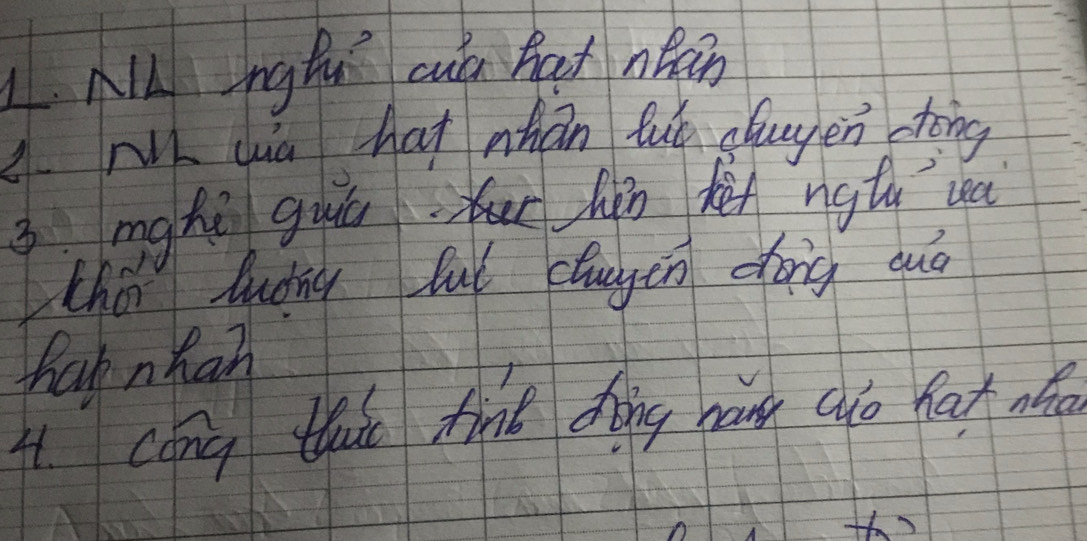 1. NL nghỉ của hạt nhân
2. NL của hạt nhân lúc chuyển động
3. giữa kết nghỉ và
khối lượng lúc chuyển động của
hạt nhân
4. công thức tính động năng của hạt nhân